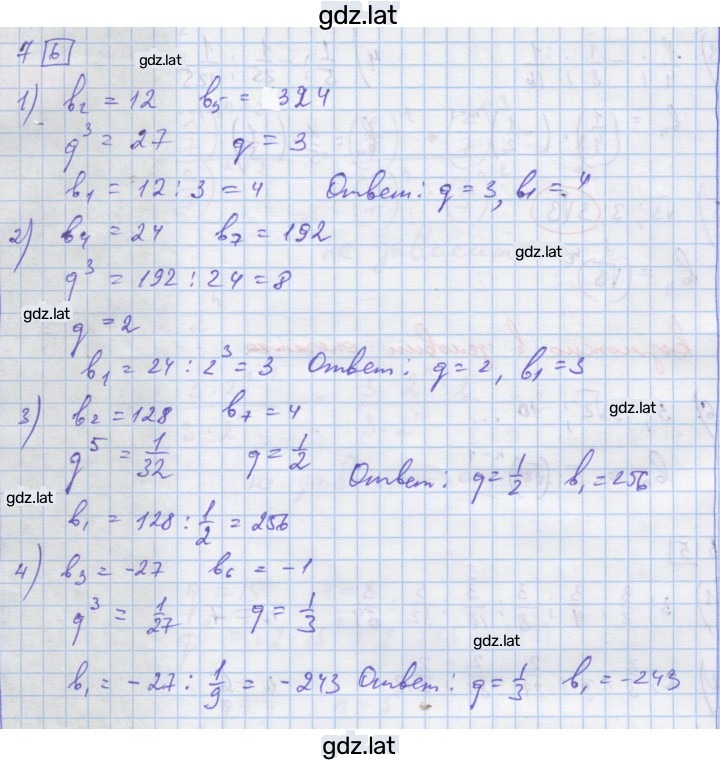 gdz.lat
7 6
gdz.lat
1) b₂ = 12 b₅ = 324
q³ = 27 q = 3
b₁ = 12 : 3 = 4 Ответ: q = 3, b₁ = 4
2) b₄ = 24 b₇ = 192
gdz.lat
q³ = 192 : 24 = 8
gdz.lat
q = 2
b₁ = 24 : 2³ = 3 Ответ: q = 2, b₁ = 3
gdz.lat
3) b₂ = 128 b₇ = 4
q⁵ = 1/32 q = 1/2
Ответ: q = 1/2 b₁ = 256
gdz.lat
b₁ = 128 : 1/2 = 256
4) b₃ = -27 b₆ = -1
q³ = 1/27 q = 1/3
gdz.lat
b₁ = -27 : 1/9 = -243 Ответ: q = 1/3 b₁ = -243
gdz.lat